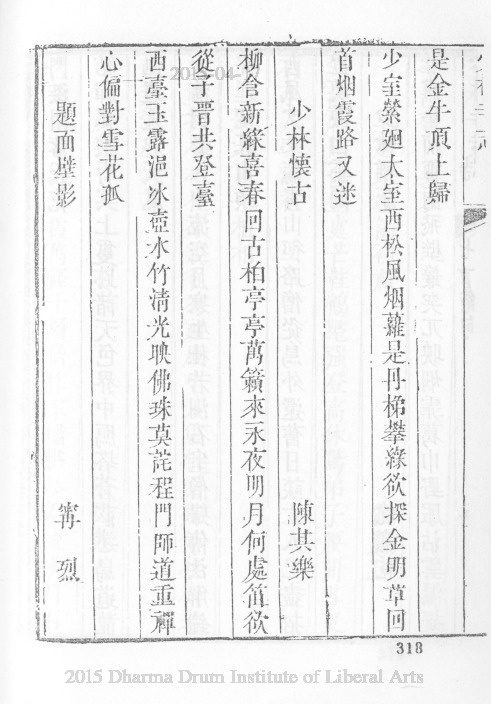 是金牛頂上歸
少室縈廻太室西松風烟蘿是丹梯攀緣欲探金明草回
首烟霞路又迷
少林懷古 陳其樂
柳含新綠喜春回古柏亭亭萬籟來永夜明月何處笛欲
從子晉共登臺
西臺玉露浥冰壺水竹清光映佛珠莫詫程門師道重禪
心偏對雪花孤
題面壁影 甯烈
318
2015 Dharma Drum Institute of Liberal Arts